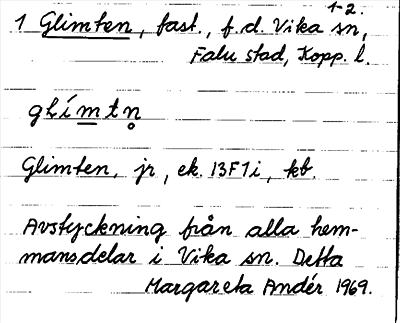 1-2.
1 Glimten, fast., f.d. Vika sn,
Falu stad, Kopp. l.
glímtn̥
Glimten, jr, ek. 13F1i, kb.
Avstyckning från alla hem-
mansdelar i Vika sn. Detta
Margareta Andér 1969.